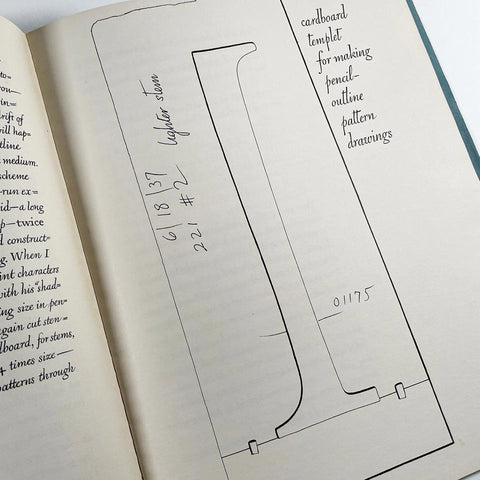 to=
you—
in=
drift of
will hap=
tline
medium.
scheme
-run ex=
id—a long
p—twice
d construct=
g. When I
int characters
with his "shad=
ing size in pen=
gain cut sten=
dboard, for stems,
times size—
patterns through
cardboard
templet
for making
pencil-
outline
pattern
drawings
6/18/37 lighter stem
221 #2
01175